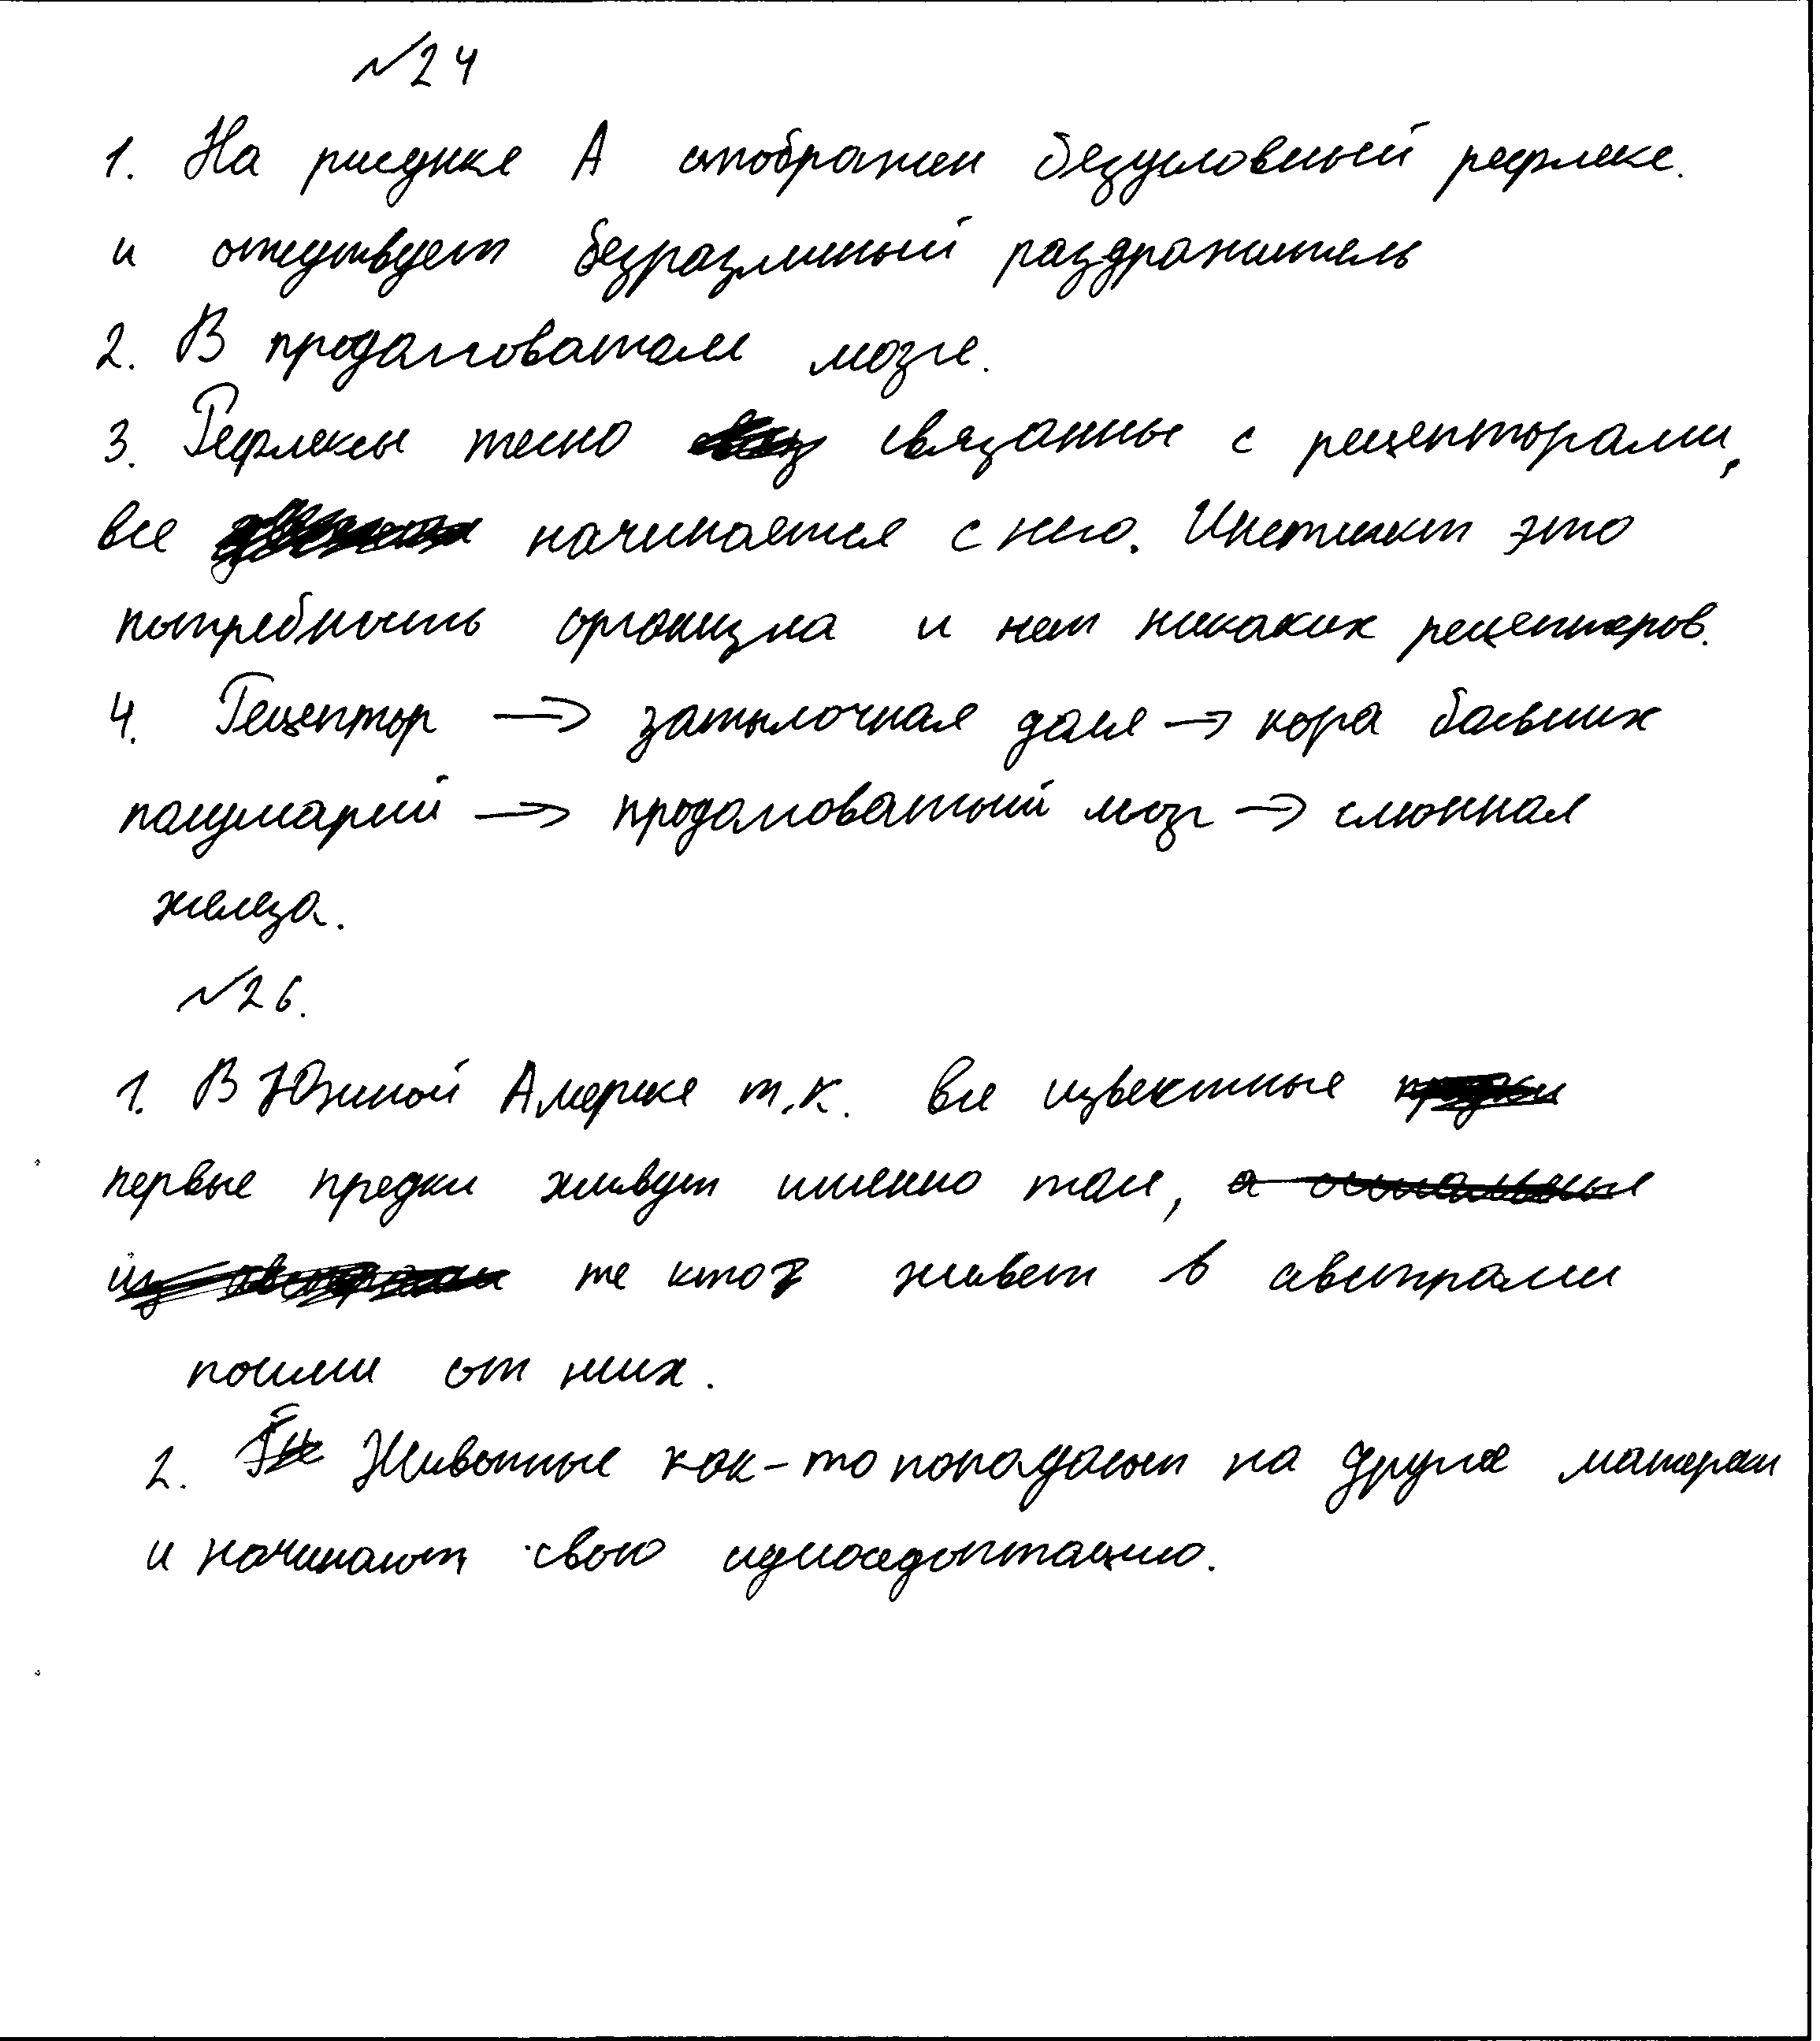 №24
1. На рисунке А отображен безусловный рефлекс.
и отсутвует безразличный раздражитель
2. В продолговатом мозге.
3. Рефлексы тесно связанны с рецепторами,
все начинается с него. Инстинкт это
потребность организма и нет никаких рецепторов.
4. Рецептор → затылочная доля → кора больших
полушарий → продолговатый мозг → слюнная
железа.
№26.
1. В Южной Америке т.к. все известные
первые предки живут именно там,
те кто живет в австралии
пошли от них.
2. Животные как-то попадают на другие матераки
и начинают свою идиоадоптацию.